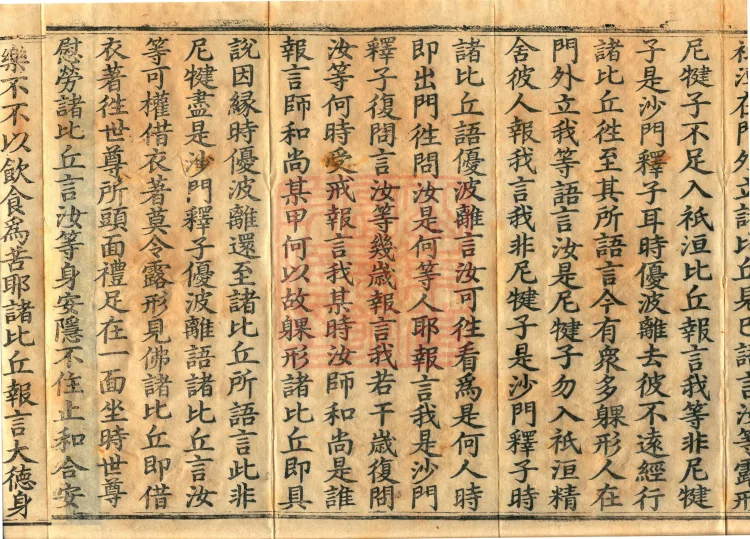 在門外立諸比丘見已語言汝等露形
尼犍子不足入祇洹比丘報言我等非尼犍
子是沙門釋子耳時優波離去彼不遠經行
諸比丘往至其所語言今有衆多躶形人在
門外立我等語言汝是尼犍子勿入祇洹精
舍彼人報我言我非尼犍子是沙門釋子時
諸比丘語優波離言汝可往看爲是何人時
即出門往問汝是何等人耶報言我是沙門
釋子復問言汝等幾歲報言我若干歲復問
汝等何時受戒報言我某時汝師和尚是誰
報言師和尚某甲何以故躶形諸比丘即具
說因緣時優波離還至諸比丘所語言此非
尼犍盡是沙門釋子優波離語諸比丘言汝
等可權借衣著莫令露形見佛諸比丘即借
衣著往世尊所頭面禮足在一面坐時世尊
慰勞諸比丘言汝等身安隱不住止和合安
樂不不以飲食爲苦耶諸比丘報言大德身